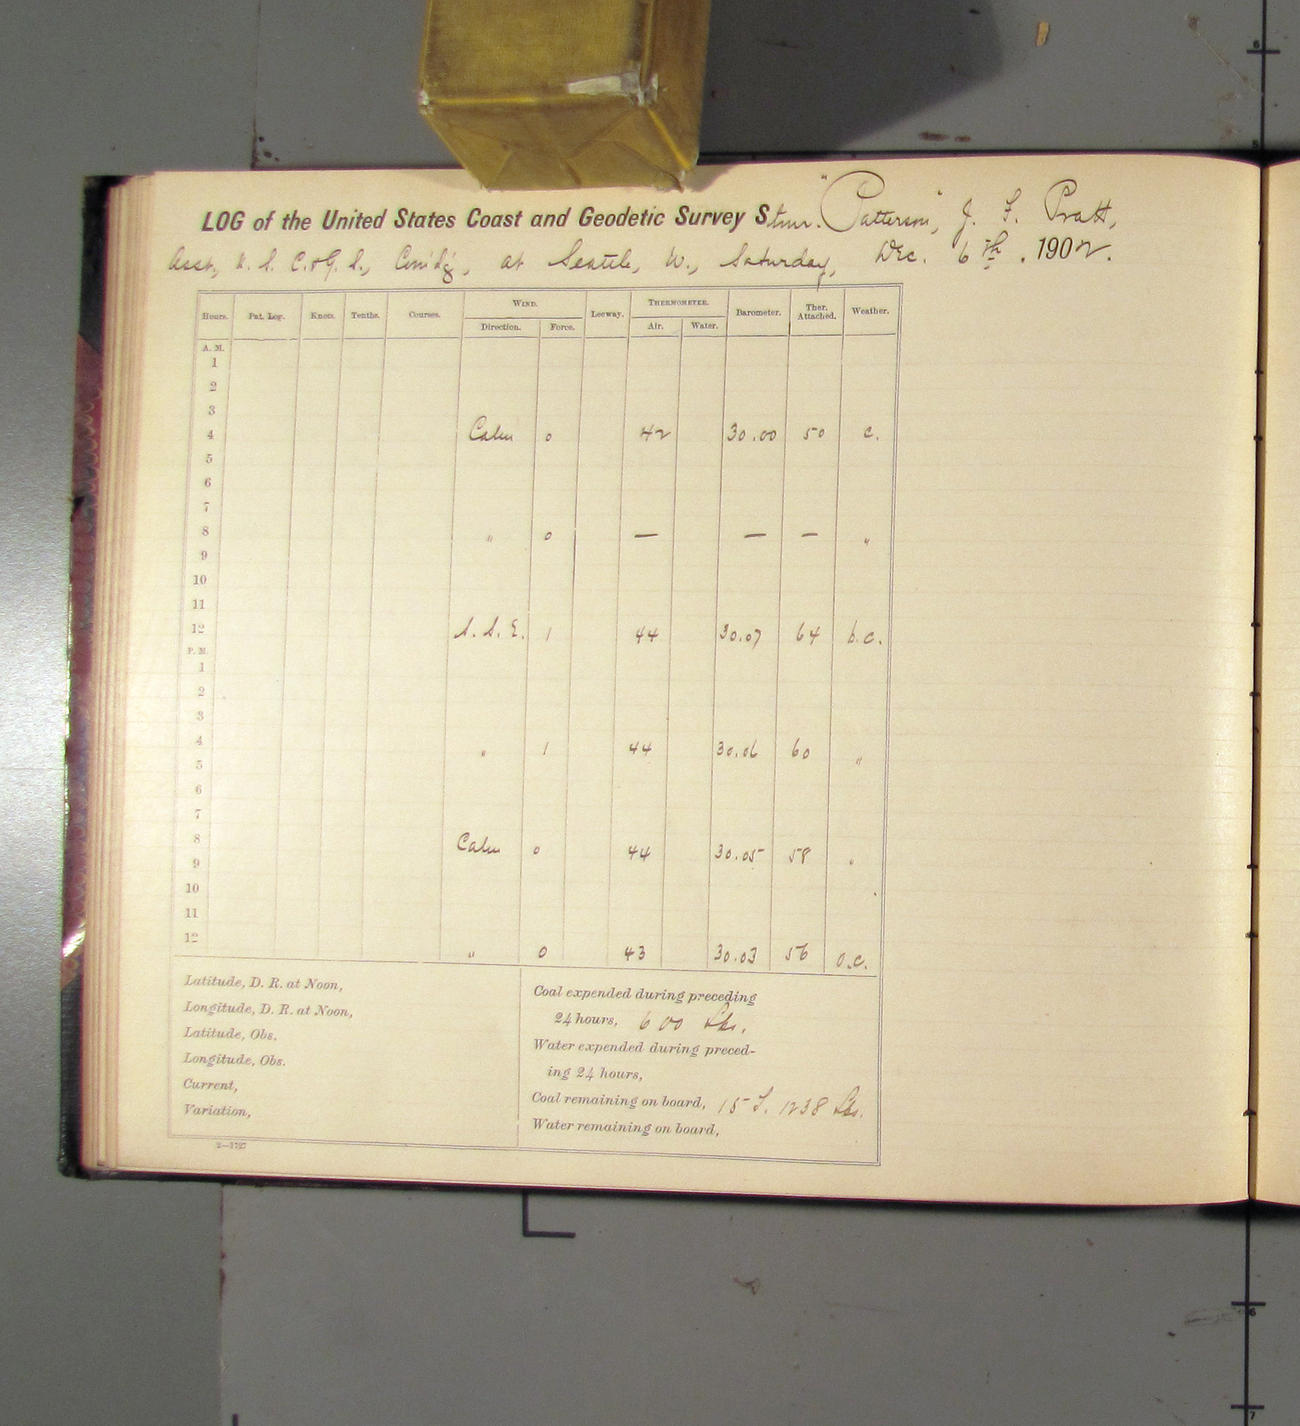 LOG of the United States Coast and Geodetic Survey Stmr. "Patterson", J. F. Pratt,
Asst, U. S. C. & G. S., Com'd'g, at Seattle, W., Saturday, Dec. 6th, 1902.
Hours. Pat. Log. Knots. Tenths. Courses. WIND. Leeway. THERMOMETER. Barometer. Ther. Attached. Weather.
Direction. Force. Air. Water.
A. M.
1
2
3
4 Calm 0 42 30.00 50 c.
5
6
7
8 " 0 — — — "
9
10
11
12 S. S. E. 1 44 30.07 64 b.c.
P. M.
1
2
3
4 " 1 44 30.06 60 "
5
6
7
8 Calm 0 44 30.05 58 "
9
10
11
12 " 0 43 30.03 56 o.c.
Latitude, D. R. at Noon,
Longitude, D. R. at Noon,
Latitude, Obs.
Longitude, Obs.
Current,
Variation,
Coal expended during preceding
24 hours, 600 Lbs.
Water expended during preced-
ing 24 hours,
Coal remaining on board, 15 T. 1238 Lbs.
Water remaining on board,
2—1727
6
5
6
7